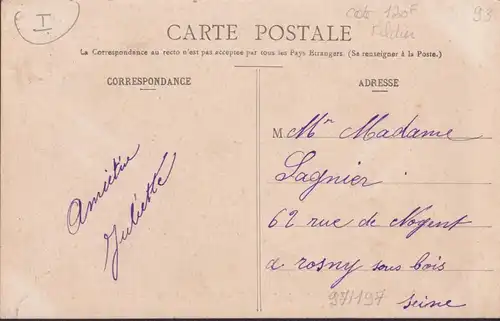 I
cote 120F
93
CARTE POSTALE
La Correspondance au recto n'est pas acceptée par tous les Pays Etrangers. (Se renseigner à la Poste.)
CORRESPONDANCE
Amitiée
Juliette
ADRESSE
M Mr Madame
Lagnier
62 rue de Nogent
a rosny sous bois
971197
seine